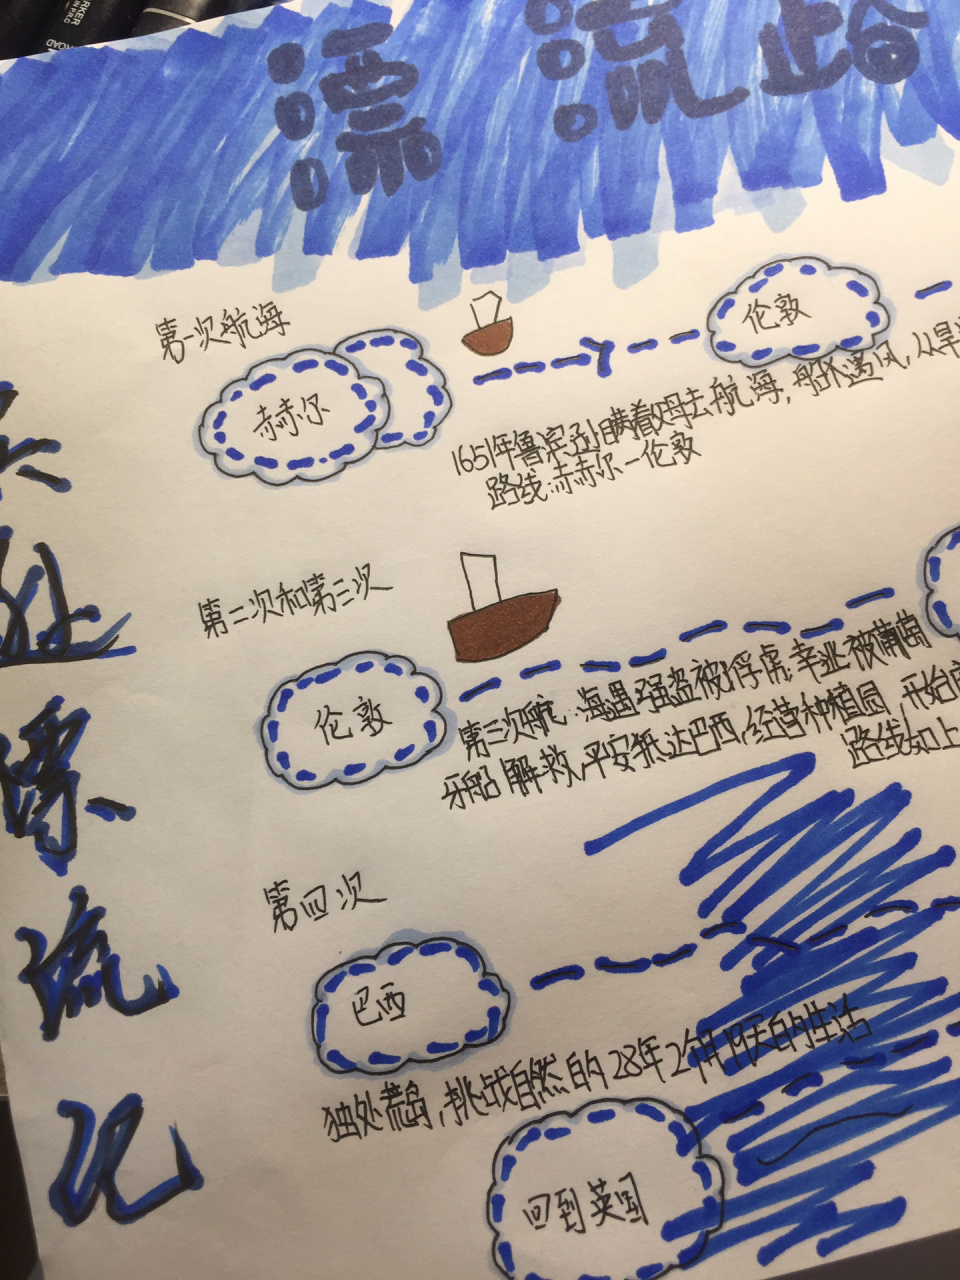 漂流路
第一次航海
伦敦
赫赫尔
1651年鲁滨逊瞒着父母去航海,船不遇风,从早
路线:赫赫尔-伦敦
第二次和第三次
伦敦
第三次航:海遇强盗被俘虏.幸业被葡萄
牙船解救,平安抵达巴西,经营种植园,开始
路线如上
第四次
巴西
独处荒岛,挑战自然的28年2个月19天的生活
回到英国
漂
流
记